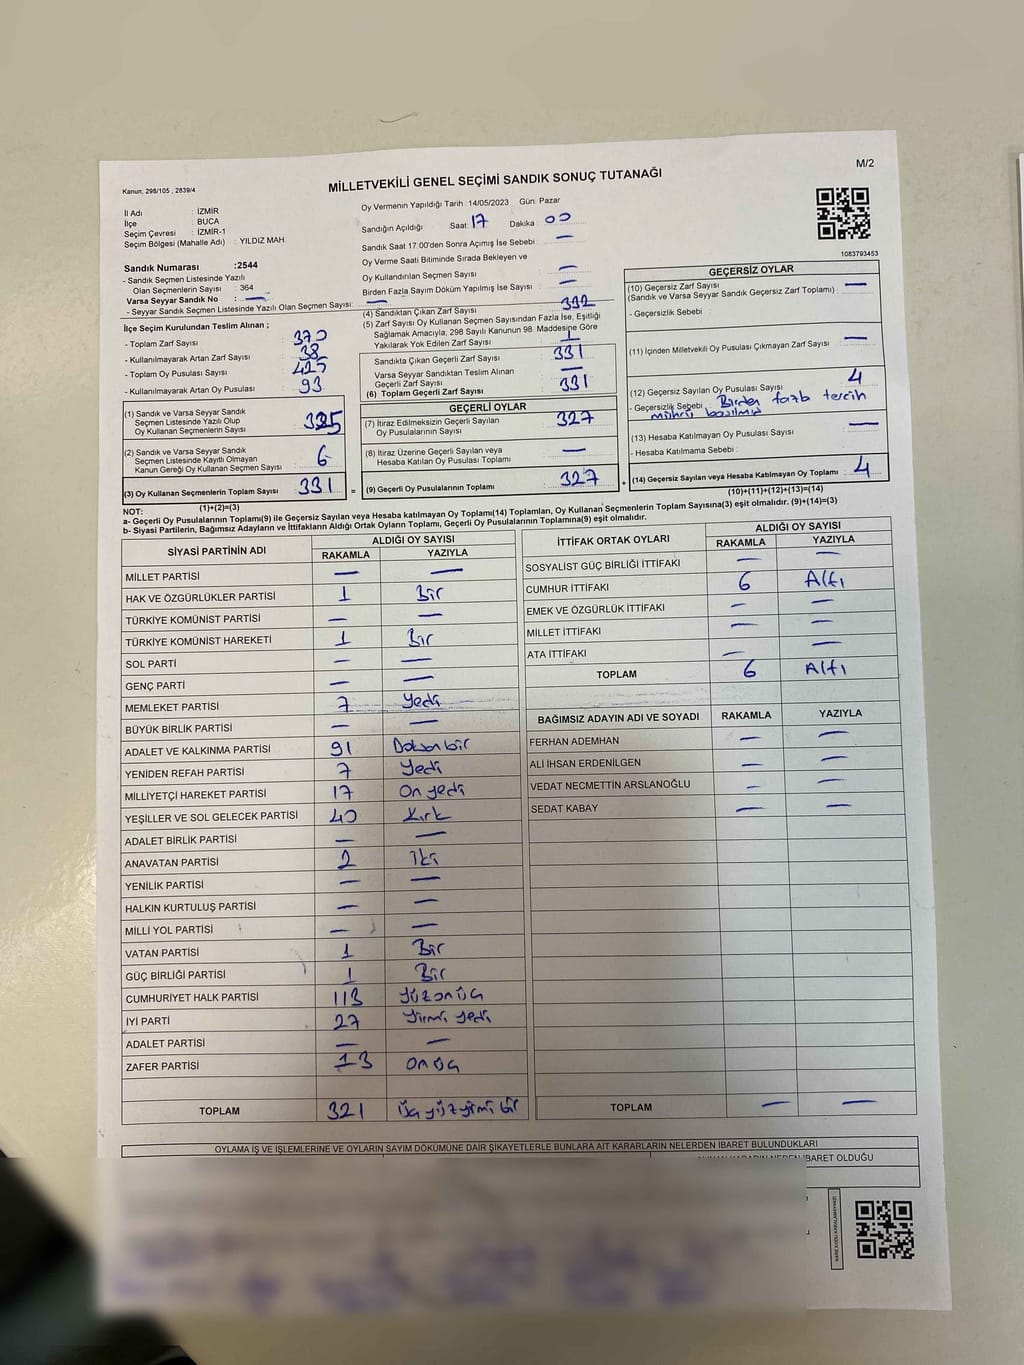 M/2
Kanun; 298/105 , 2839/4
MİLLETVEKİLİ GENEL SEÇİMİ SANDIK SONUÇ TUTANAĞI
İl Adı : İZMİR
İlçe : BUCA
Seçim Çevresi : İZMİR-1
Seçim Bölgesi (Mahalle Adı) : YILDIZ MAH.
Oy Vermenin Yapıldığı Tarih : 14/05/2023 Gün: Pazar
Sandığın Açıldığı Saat: 17 Dakika 00
Sandık Saat 17:00'den Sonra Açımış İse Sebebi : —
Oy Verme Saati Bitiminde Sırada Bekleyen ve
Oy Kullandırılan Seçmen Sayısı : —
Birden Fazla Sayım Döküm Yapılmış İse Sayısı : —
1083793453
Sandık Numarası :2544
- Sandık Seçmen Listesinde Yazılı
Olan Seçmenlerin Sayısı : 364
Varsa Seyyar Sandık No : —
- Seyyar Sandık Seçmen Listesinde Yazılı Olan Seçmen Sayısı: —
İlçe Seçim Kurulundan Teslim Alınan ;
- Toplam Zarf Sayısı : 370
- Kullanılmayarak Artan Zarf Sayısı : 38
- Toplam Oy Pusulası Sayısı : 425
- Kullanılmayarak Artan Oy Pusulası : 93
(1) Sandık ve Varsa Seyyar Sandık
Seçmen Listesinde Yazılı Olup
Oy Kullanan Seçmenlerin Sayısı : 325
(2) Sandık ve Varsa Seyyar Sandık
Seçmen Listesinde Kayıtlı Olmayan
Kanun Gereği Oy Kullanan Seçmen Sayısı : 6
(3) Oy Kullanan Seçmenlerin Toplam Sayısı 331
(1)+(2)=(3)
(4) Sandıktan Çıkan Zarf Sayısı : 332
(5) Zarf Sayısı Oy Kullanan Seçmen Sayısından Fazla İse, Eşitliği
Sağlamak Amacıyla; 298 Sayılı Kanunun 98. Maddesine Göre
Yakılarak Yok Edilen Zarf Sayısı : 1
Sandıkta Çıkan Geçerli Zarf Sayısı : 331
Varsa Seyyar Sandıktan Teslim Alınan
Geçerli Zarf Sayısı : —
(6) Toplam Geçerli Zarf Sayısı : 331
GEÇERLİ OYLAR
(7) İtiraz Edilmeksizin Geçerli Sayılan
Oy Pusulalarının Sayısı : 327
(8) İtiraz Üzerine Geçerli Sayılan veya
Hesaba Katılan Oy Pusulası Toplamı : —
= (9) Geçerli Oy Pusulalarının Toplamı : 327 +
GEÇERSİZ OYLAR
(10) Geçersiz Zarf Sayısı
(Sandık ve Varsa Seyyar Sandık Geçersiz Zarf Toplamı) : —
- Geçersizlik Sebebi :
(11) İçinden Milletvekili Oy Pusulası Çıkmayan Zarf Sayısı : —
(12) Geçersiz Sayılan Oy Pusulası Sayısı : 4
- Geçersizlik Sebebi : Birden fazla tercih
mührü basılmış
(13) Hesaba Katılmayan Oy Pusulası Sayısı : —
- Hesaba Katılmama Sebebi :
(14) Geçersiz Sayılan veya Hesaba Katılmayan Oy Toplamı : 4
(10)+(11)+(12)+(13)=(14)
NOT:
a- Geçerli Oy Pusulalarının Toplamı(9) ile Geçersiz Sayılan veya Hesaba katılmayan Oy Toplamı(14) Toplamları, Oy Kullanan Seçmenlerin Toplam Sayısına(3) eşit olmalıdır. (9)+(14)=(3)
b- Siyasi Partilerin, Bağımsız Adayların ve İttifakların Aldığı Ortak Oyların Toplamı, Geçerli Oy Pusulalarının Toplamına(9) eşit olmalıdır.
SİYASİ PARTİNİN ADI ALDIĞI OY SAYISI
RAKAMLA YAZIYLA
MİLLET PARTİSİ — —
HAK VE ÖZGÜRLÜKLER PARTİSİ 1 Bir
TÜRKİYE KOMÜNİST PARTİSİ — —
TÜRKİYE KOMÜNİST HAREKETİ 1 Bir
SOL PARTİ — —
GENÇ PARTİ — —
MEMLEKET PARTİSİ 7 Yedi
BÜYÜK BİRLİK PARTİSİ — —
ADALET VE KALKINMA PARTİSİ 91 Doksan bir
YENİDEN REFAH PARTİSİ 7 Yedi
MİLLİYETÇİ HAREKET PARTİSİ 17 On yedi
YEŞİLLER VE SOL GELECEK PARTİSİ 40 Kırk
ADALET BİRLİK PARTİSİ — —
ANAVATAN PARTİSİ 2 İki
YENİLİK PARTİSİ — —
HALKIN KURTULUŞ PARTİSİ — —
MİLLİ YOL PARTİSİ — —
VATAN PARTİSİ 1 Bir
GÜÇ BİRLİĞİ PARTİSİ 1 Bir
CUMHURİYET HALK PARTİSİ 113 Yüz on üç
İYİ PARTİ 27 Yirmi yedi
ADALET PARTİSİ — —
ZAFER PARTİSİ 13 On üç
TOPLAM 321 Üç yüz yirmi bir
İTTİFAK ORTAK OYLARI ALDIĞI OY SAYISI
RAKAMLA YAZIYLA
SOSYALİST GÜÇ BİRLİĞİ İTTİFAKI — —
CUMHUR İTTİFAKI 6 Altı
EMEK VE ÖZGÜRLÜK İTTİFAKI — —
MİLLET İTTİFAKI — —
ATA İTTİFAKI — —
TOPLAM 6 Altı
BAĞIMSIZ ADAYIN ADI VE SOYADI RAKAMLA YAZIYLA
FERHAN ADEMHAN — —
ALİ İHSAN ERDENİLGEN — —
VEDAT NECMETTİN ARSLANOĞLU — —
SEDAT KABAY — —
TOPLAM — —
OYLAMA İŞ VE İŞLEMLERİNE VE OYLARIN SAYIM DÖKÜMÜNE DAİR ŞİKAYETLERLE BUNLARA AİT KARARLARIN NELERDEN İBARET BULUNDUKLARI
İBARET OLDUĞU